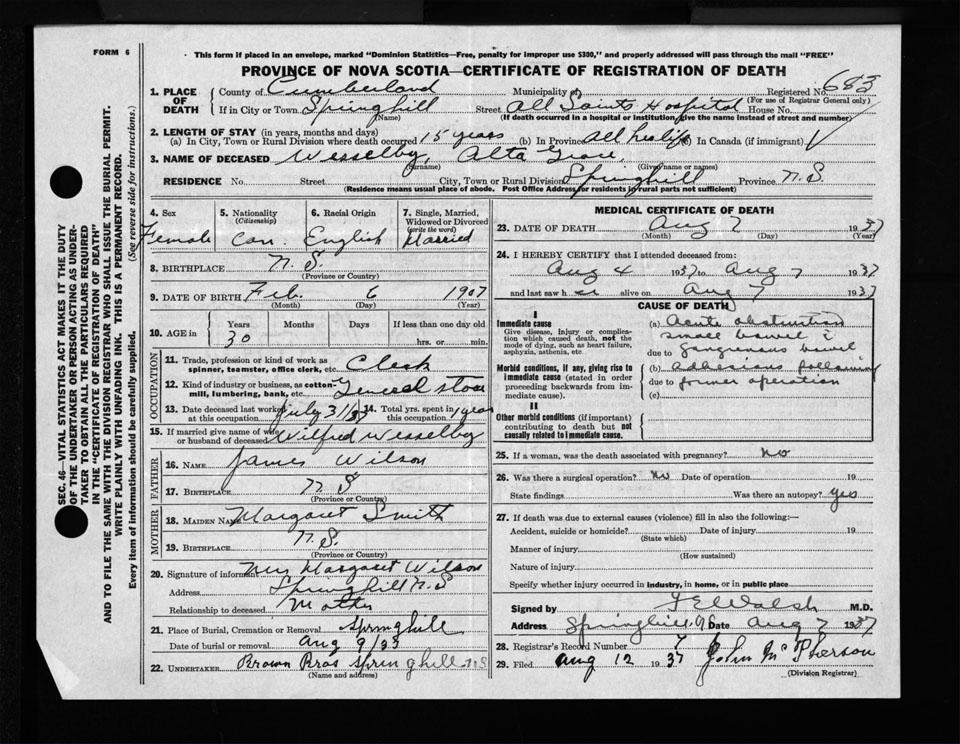 FORM 6
This form if placed in an envelope, marked "Dominion Statistics—Free, penalty for improper use $300," and properly addressed will pass through the mail "FREE"
PROVINCE OF NOVA SCOTIA—CERTIFICATE OF REGISTRATION OF DEATH
1. PLACE OF DEATH
County of Cumberland Municipality of Registered No. 683
(For use of Registrar General only)
If in City or Town Springhill Street All Saints Hospital House No.
(Name) (If death occurred in a hospital or institution, give the name instead of street and number)
2. LENGTH OF STAY (in years, months and days)
(a) In City, Town or Rural Division where death occurred 15 years (b) In Province All her life (c) In Canada (if immigrant)
3. NAME OF DECEASED Wesselby, Alta Grace,
(Surname) (Given name or names)
RESIDENCE No. Street City, Town or Rural Division Springhill Province N.S.
(Residence means usual place of abode. Post Office Address for residents in rural parts not sufficient)
SEC. 46—VITAL STATISTICS ACT MAKES IT THE DUTY
OF THE UNDERTAKER OR PERSON ACTING AS UNDER-
TAKER TO OBTAIN ALL THE PARTICULARS REQUIRED
IN THE "CERTIFICATE OF REGISTRATION OF DEATH"
AND TO FILE THE SAME WITH THE DIVISION REGISTRAR WHO SHALL ISSUE THE BURIAL PERMIT.
WRITE PLAINLY WITH UNFADING INK. THIS IS A PERMANENT RECORD.
Every item of information should be carefully supplied. (See reverse side for instructions.)
4. Sex Female
5. Nationality (Citizenship) Can.
6. Racial Origin English
7. Single, Married, Widowed or Divorced (write the word) Married
8. BIRTHPLACE N.S.
(Province or Country)
9. DATE OF BIRTH Feb. 6 1907
(Month) (Day) (Year)
10. AGE in Years Months Days If less than one day old
30 hrs. or min.
OCCUPATION
11. Trade, profession or kind of work as spinner, teamster, office clerk, etc. Clerk
12. Kind of industry or business, as cotton-mill, lumbering, bank, etc. General store
13. Date deceased last worked at this occupation July 31/37 14. Total yrs. spent in this occupation 1 year
15. If married give name of wife or husband of deceased Wilfred Wesselby
FATHER
16. NAME James Wilson
17. BIRTHPLACE N S
(Province or Country)
MOTHER
18. MAIDEN NAME Margaret Smith
19. BIRTHPLACE N.S.
(Province or Country)
20. Signature of informant Mrs Margaret Wilson
Address Springhill N.S
Relationship to deceased Mother
21. Place of Burial, Cremation or Removal Springhill
Date of burial or removal Aug 9/
22. UNDERTAKER Brown Bros Springhill NS
(Name and address)
MEDICAL CERTIFICATE OF DEATH
23. DATE OF DEATH Aug 7 1937
(Month) (Day) (Year)
24. I HEREBY CERTIFY that I attended deceased from:
Aug 4 1937 to Aug 7 1937
and last saw her alive on Aug 7 1937
CAUSE OF DEATH
I
Immediate cause
Give disease, injury or complication which caused death, not the mode of dying, such as heart failure, asphyxia, asthenia, etc.
(a) Acute obstruction
small bowel c̄
due to gangrenous bowel
Morbid conditions, if any, giving rise to immediate cause (stated in order proceeding backwards from immediate cause).
(b) adhesions following
due to former operation
(c)
II
Other morbid conditions (if important) contributing to death but not causally related to immediate cause.
25. If a woman, was the death associated with pregnancy? No
26. Was there a surgical operation? No Date of operation 19
State findings Was there an autopsy? yes
27. If death was due to external causes (violence) fill in also the following:—
Accident, suicide or homicide? Date of injury 19
(State which)
Manner of injury
(How sustained)
Nature of injury
Specify whether injury occurred in industry, in home, or in public place
Signed by F E Walsh M.D.
Address Springhill NS Date Aug 7 1937
28. Registrar's Record Number 7
29. Filed Aug 12 1937 John McPherson
(Division Registrar)